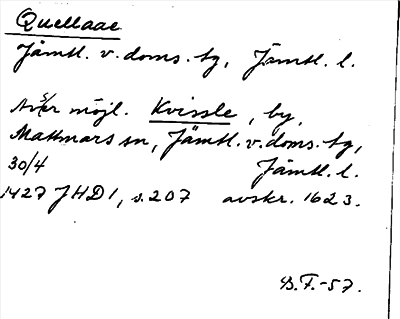 Quellaae
Jämtl. v. doms. tg, Jämtl. l.
möjl. Kvissle, by,
Mattmars sn, Jämtl. v. doms. tg,
30/4 Jämtl. l.
1427 JHD 1, s. 207 avskr. 1623.
B. F. -57.